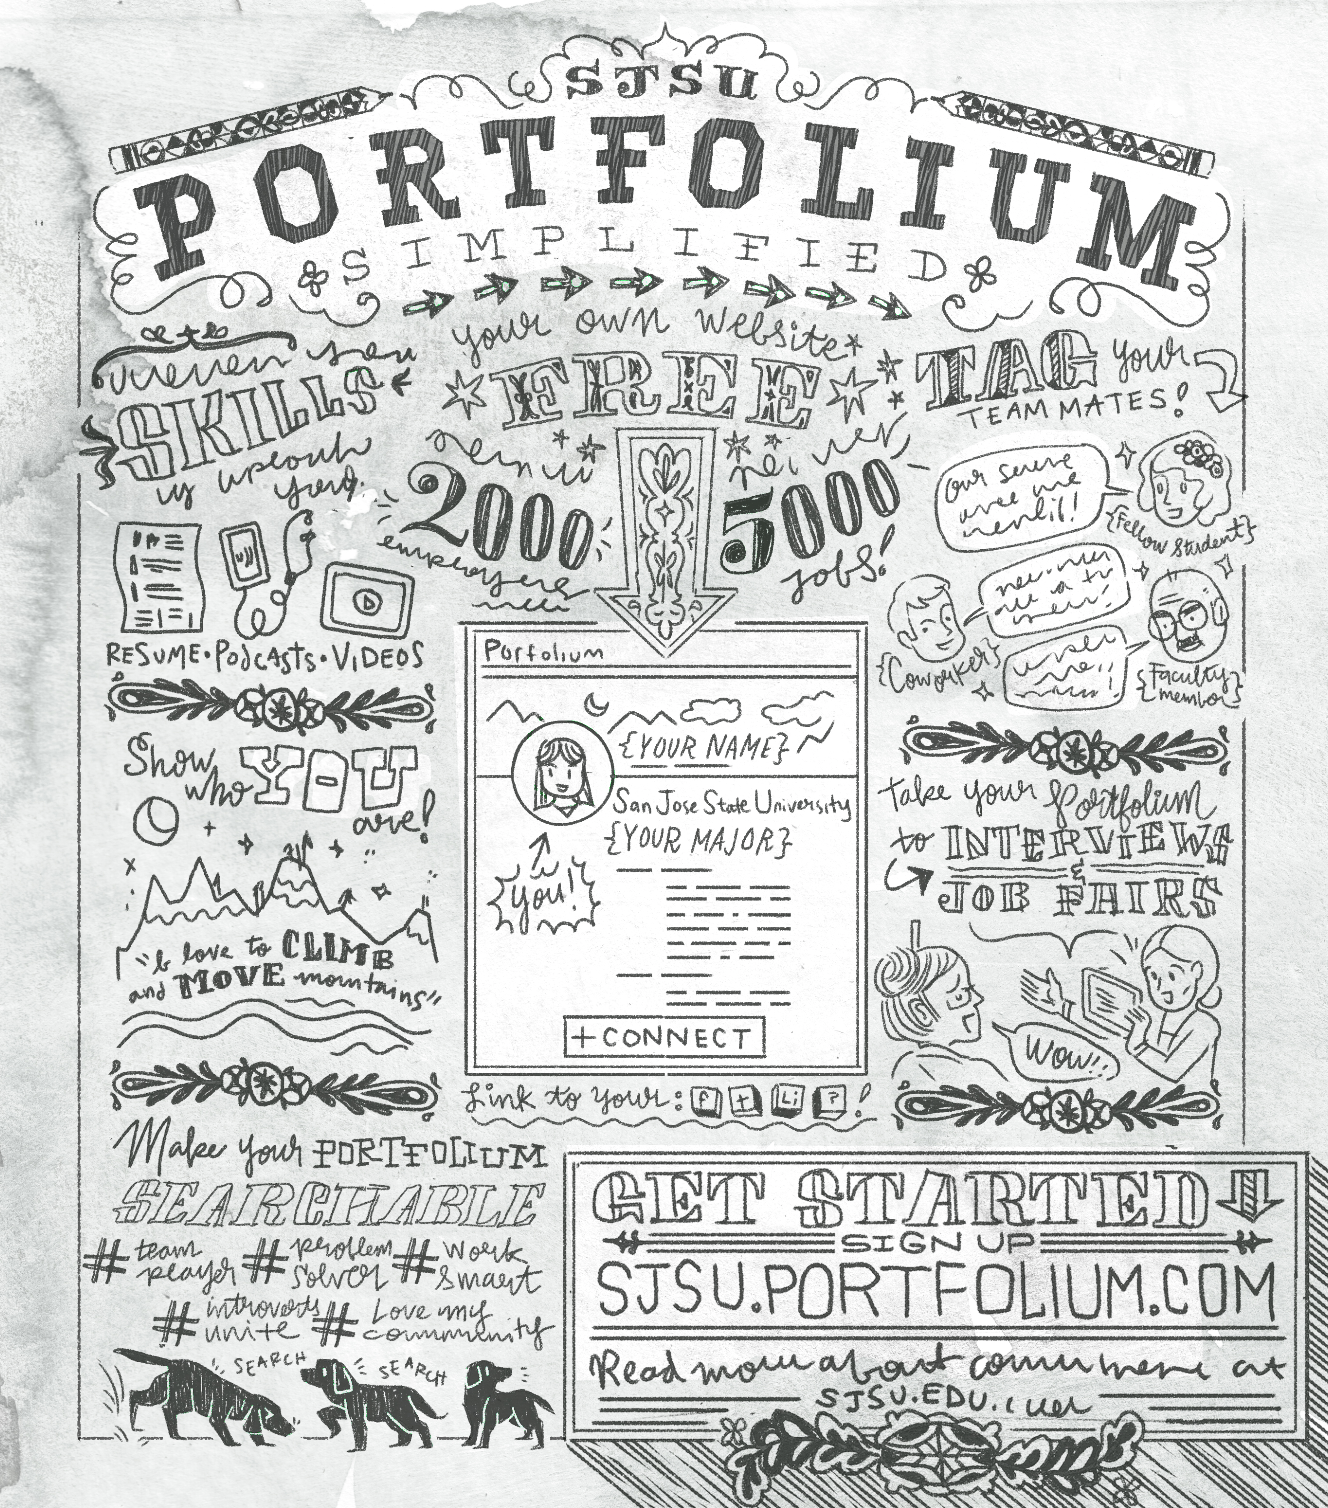 SJSU
PORTFOLIUM
SIMPLIFIED
your own website
FREE
SKILLS
by
RESUME • PodCASTS • ViDEOS
Show
who YOU
are!
love to CLIMB
and MOVE mountains"
Make your PORTFOLIUM
SEARCHABLE
# team player # problem solver # work smart
# introverts unite # Love my community
SEARCH SEARCH
2000
5000
jobs!
Porfolium
{YOUR NAME}
San Jose State University
{YOUR MAJOR}
you!
+CONNECT
Link to your: f t Li ?!
TAG your
TEAM MATES!
our
{Fellow Student}
{Coworker}
{Faculty member}
take your Portfolium
to INTERVIEWS
&
JOB FAIRS
Wow!!
GET STARTED
SIGN UP
SJSU.PORTFOLIUM.COM
Read about at
SJSU.EDU.